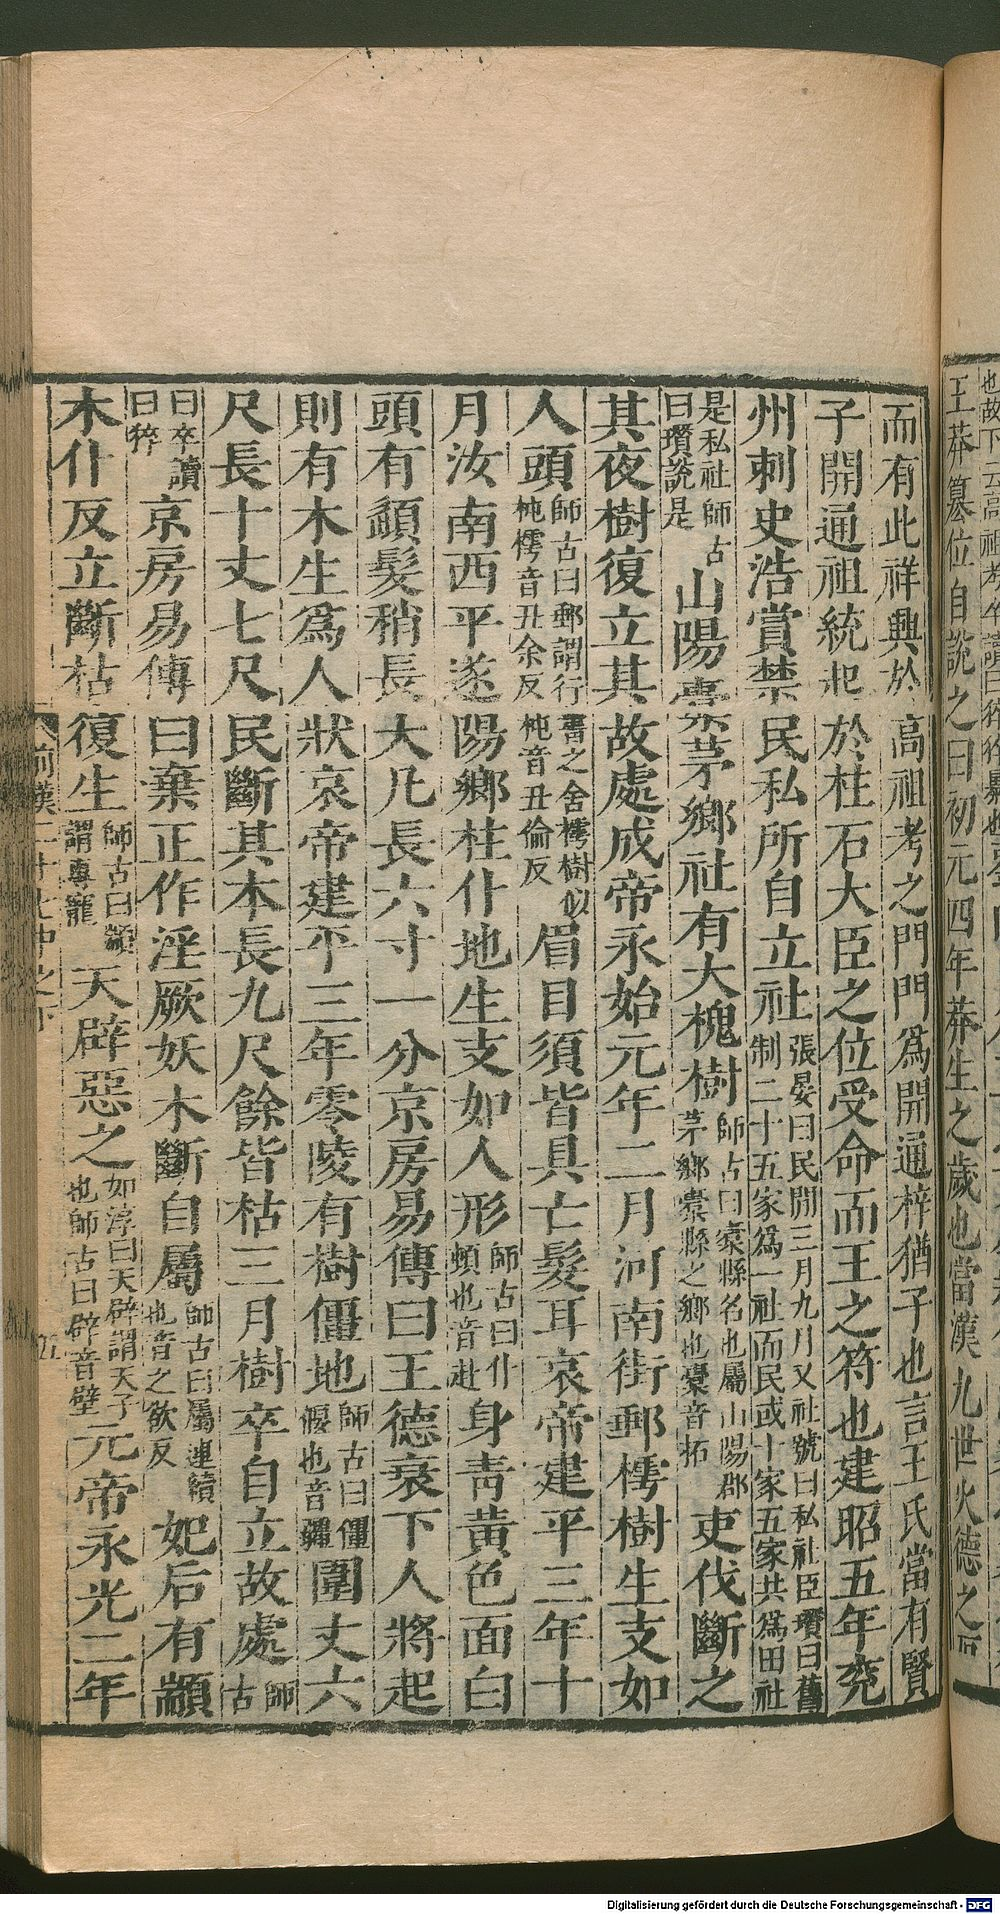 而有此祥興於高祖考之門門爲開通梓猶子也言王氏當有賢
子開通祖統起於柱石大臣之位受命而王之符也建昭五年兖
州刺史浩賞禁民私所自立社張晏曰民間三月九月又社號曰私社臣瓚曰舊制二十五家爲一社而民或十家五家共爲田社
是私社師古曰瓚說是山陽橐茅鄉社有大槐樹師古曰橐縣名也屬山陽郡茅鄉橐縣之鄉也橐音拓吏伐斷之
其夜樹復立其故處成帝永始元年二月河南街郵樗樹生支如
人頭師古曰郵謂行書之舍樗樹似杶樗音丑余反杶音丑倫反眉目須皆具亡髮耳哀帝建平三年十
月汝南西平遂陽鄉柱仆地生支如人形師古曰仆頓也音赴身青黃色面白
頭有頿髮稍長大凡長六寸一分京房易傳曰王德衰下人將起
則有木生爲人狀哀帝建平三年零陵有樹僵地師古曰僵偃也音疆圍丈六
尺長十丈七尺民斷其本長九尺餘皆枯三月樹卒自立故處師古
曰卒讀曰猝京房易傳曰棄正作淫厥妖木斷自屬師古曰屬連續也音之欲反妃后有顓
木仆反立斷枯復生師古曰顓謂專寵天辟惡之如淳曰天辟謂天子也師古曰辟音壁元帝永光二年
前漢二十七中之下
五
王莽篡位自說之曰初元四年莽生之歲也當漢九世火德之
Digitalisierung gefördert durch die Deutsche Forschungsgemeinschaft - DFG